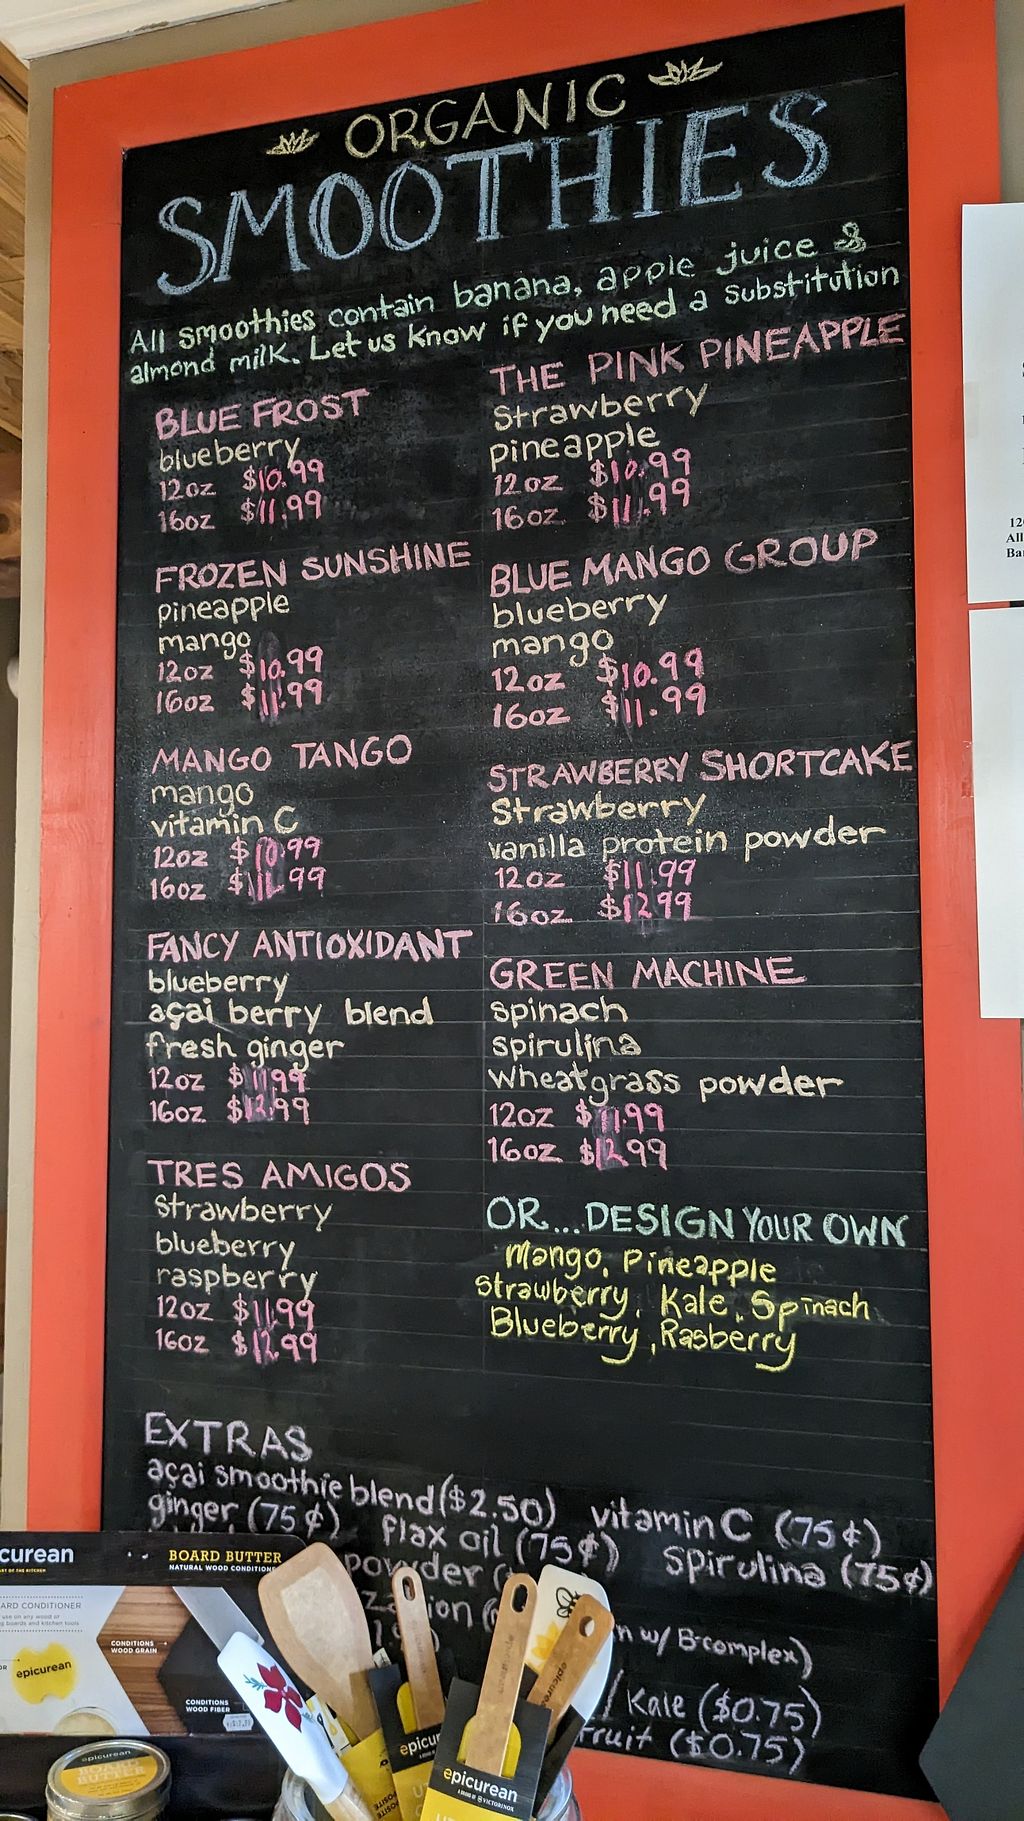 ORGANIC
SMOOTHIES
All smoothies contain banana, apple juice &
almond milk. Let us know if you need a substitution
BLUE FROST
blueberry
12oz $10.99
16oz $11.99
FROZEN SUNSHINE
pineapple
mango
12oz $10.99
16oz $11.99
MANGO TANGO
mango
vitamin C
12oz $10.99
16oz $11.99
FANCY ANTIOXIDANT
blueberry
açai berry blend
fresh ginger
12oz $11.99
16oz $12.99
TRES AMIGOS
strawberry
blueberry
raspberry
12oz $11.99
16oz $12.99
THE PINK PINEAPPLE
Strawberry
pineapple
12oz $10.99
16oz $11.99
BLUE MANGO GROUP
blueberry
mango
12oz $10.99
16oz $11.99
STRAWBERRY SHORTCAKE
Strawberry
vanilla protein powder
12oz $11.99
16oz $12.99
GREEN MACHINE
spinach
spirulina
wheatgrass powder
12oz $11.99
16oz $12.99
OR...DESIGN YOUR OWN
Mango, Pineapple
Strawberry, Kale, Spinach
Blueberry, Rasberry
EXTRAS
açai smoothie blend ($2.50) vitamin C (75¢)
ginger (75¢) flax oil (75¢) Spirulina (75¢)
powder
w/ B-complex)
/ Kale ($0.75)
fruit ($0.75)
curean
BOARD BUTTER
CONDITIONS
WOOD GRAIN
epicurean
CONDITIONS
WOOD FIBER
epicurean
BOARD
BUTTER
epicurean